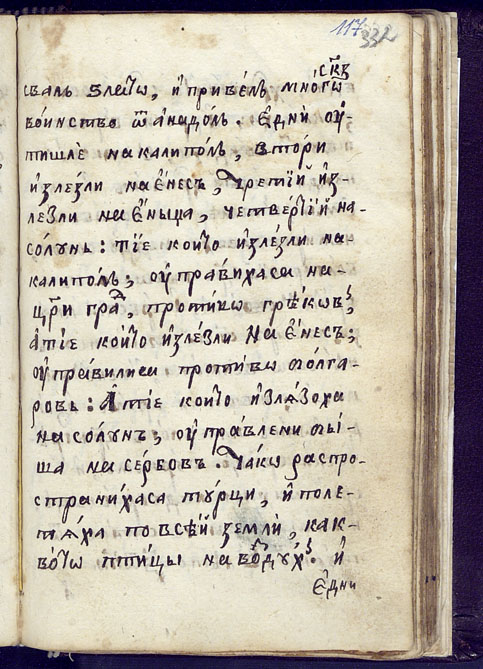 117
332
скз
свалъ ѕлетѡ, и привелъ многѡ
воинство ѿ анадолъ. едни оу-
тишле на калиполъ, втори
излезли на енесъ, третїй из-
лезли на еныца, четвертїй на
солунъ: тїе коитѡ излезли на
калиполъ; оуправихаса на
цр҃и град, противѡ грѣковъ;
а тїе коитѡ излезли на енесъ;
оуправилиса противѡ болга-
ровъ: А тїе коитѡ излязоха
на солунъ; оуправлени бы-
ша на сербовъ. Такѡ распро-
странихаса турци, и поле-
тяха по всей земли, как-
вотѡ птицы на воздухъ. и
едни